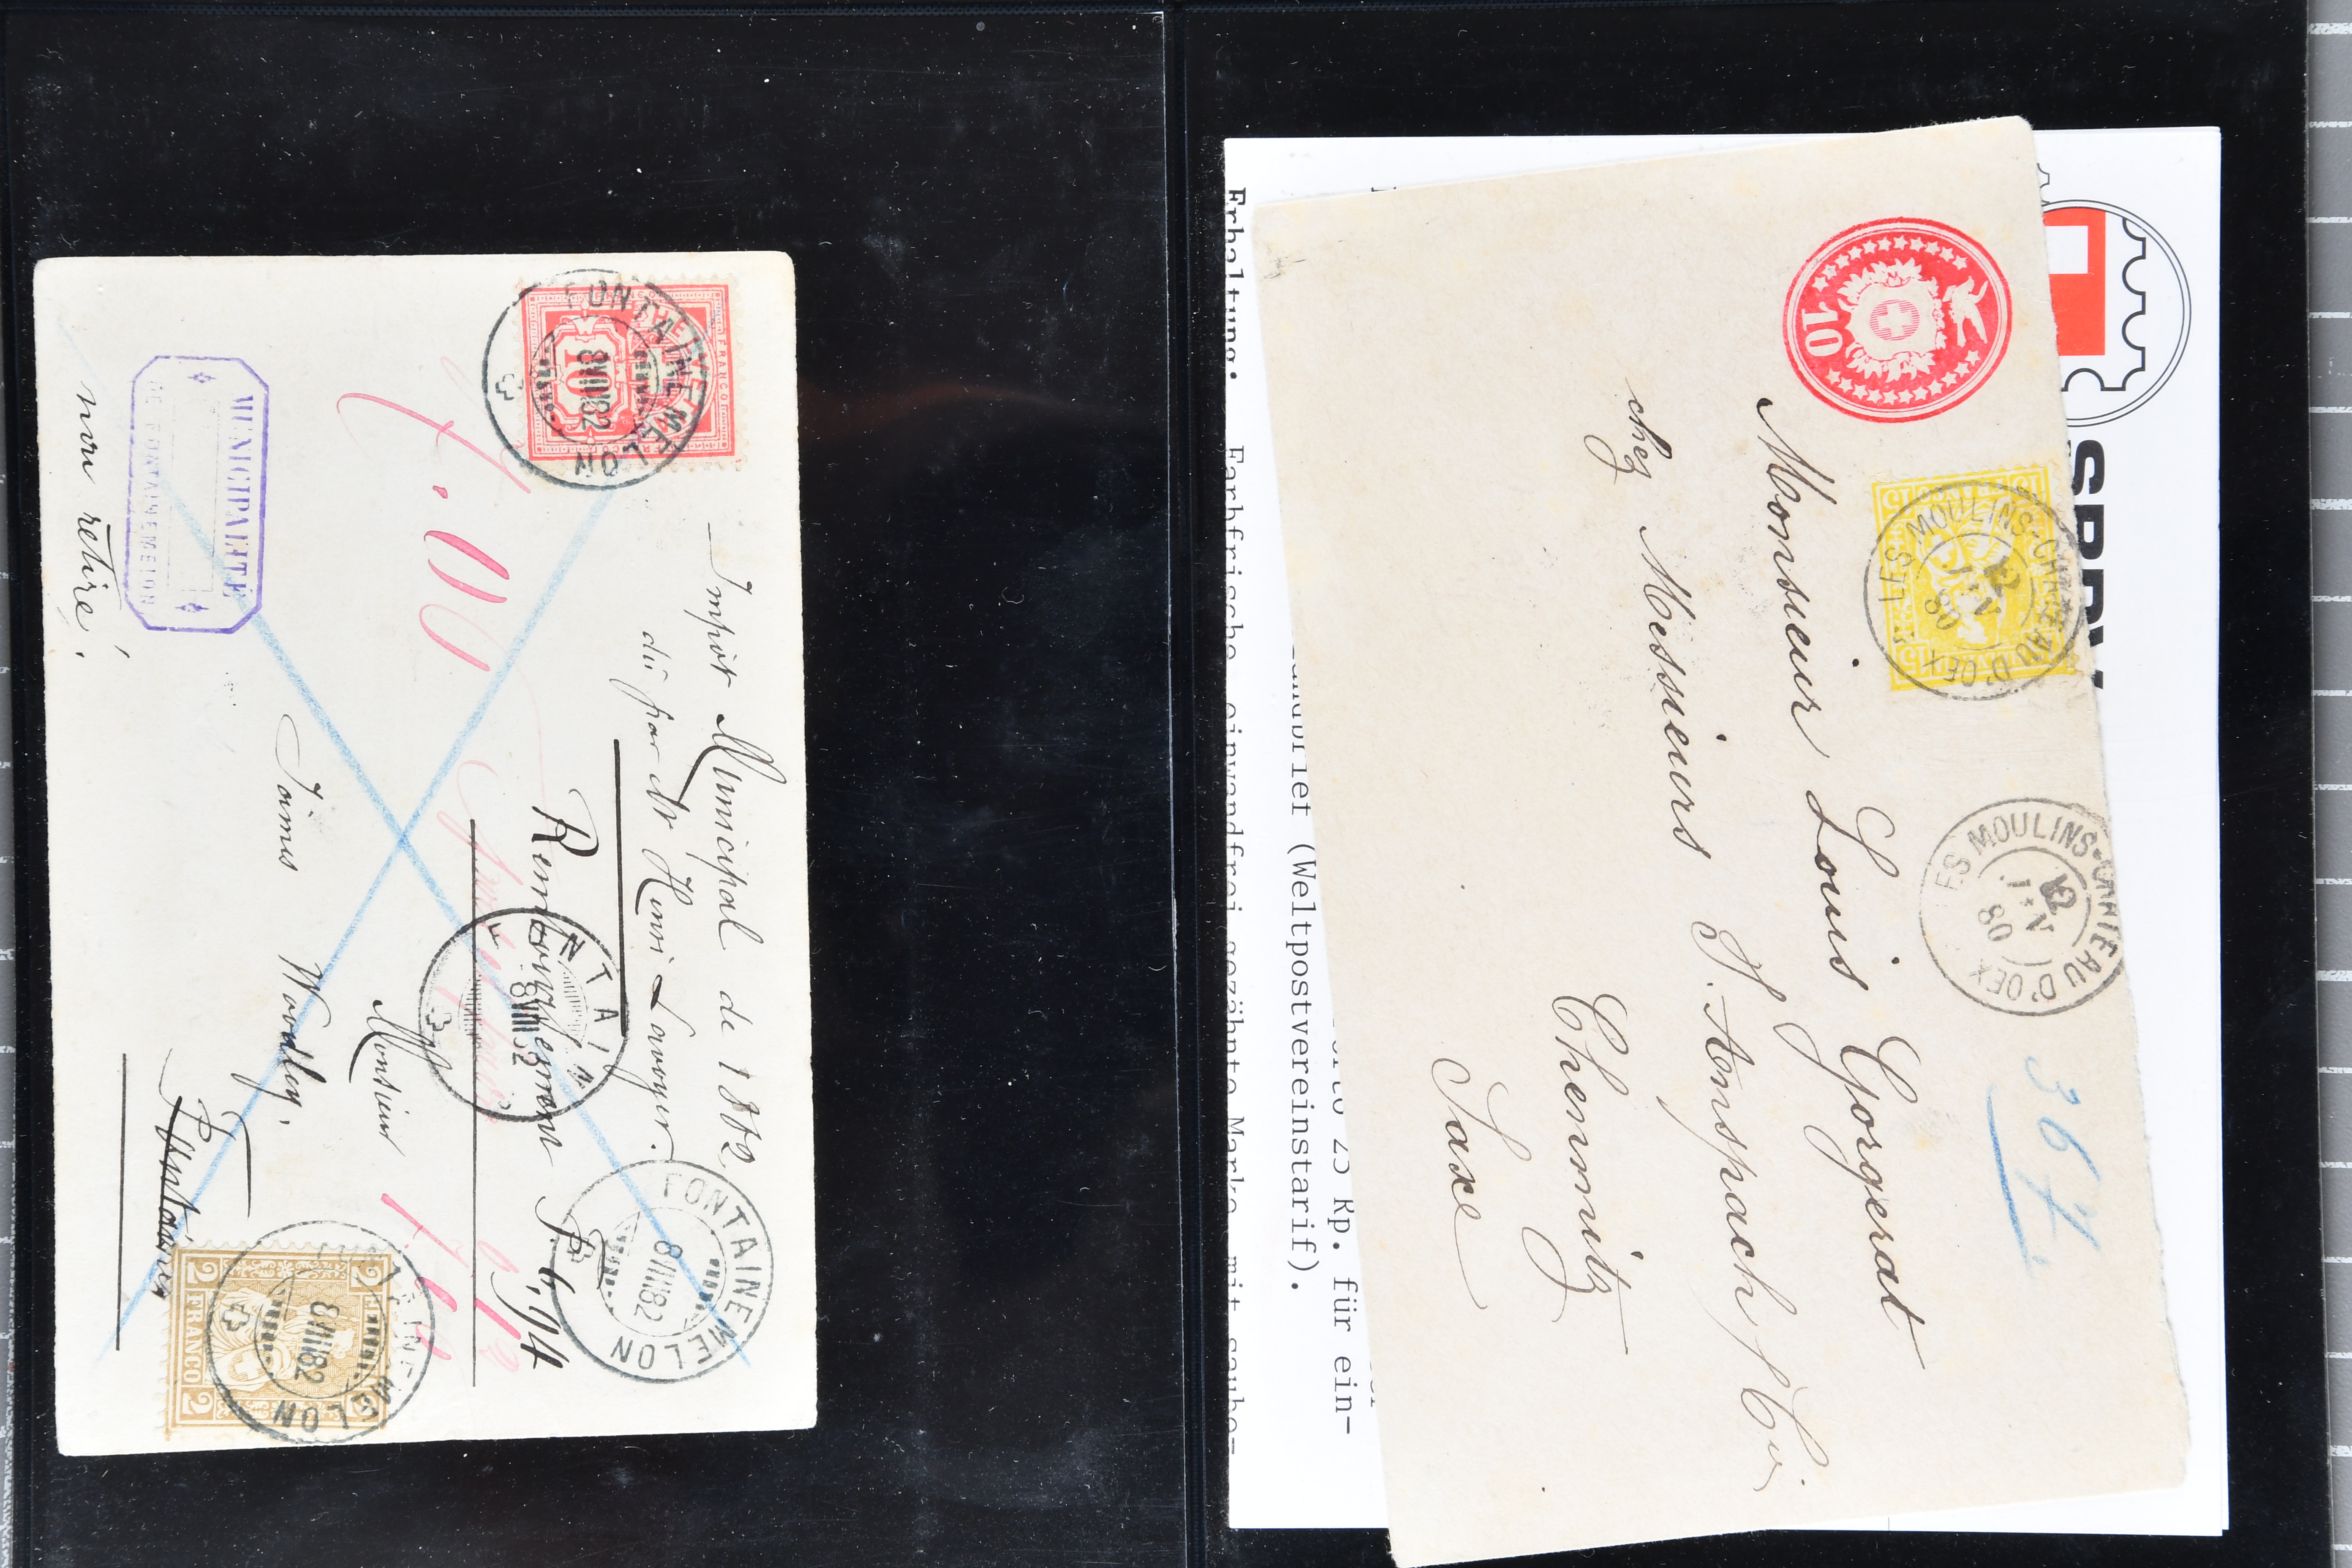 FONTAINEMELON
8 VIII 82
HELVETIA
FRANCO
10
Impôt Municipal de 1882
dû par Mr Henri Lavoyer.
Remboursement
FONTAINEMELON
8 VIII 82
8 VIII 82
Monsieur
James Woodley.
Fontaines
MUNICIPALITÉ
DE FONTAINEMELON
non retiré!
2 FRANCO 2
FONTAINEMELON
8 VIII 82
10
15
LES MOULINS-CHATEAU D'OEX
12 IV 80
LES MOULINS-CHATEAU D'OEX
12 IV 80
367.
Monsieur Louis Gorgerat
chez Messieurs J. Anspach
Chemnitz
Saxe
SBPV
Porto 25 Rp. für ein-
landbrief (Weltpostvereinstarif).
Erhaltung: Farbfrische einwandfrei gezähnte Marke mit saube-